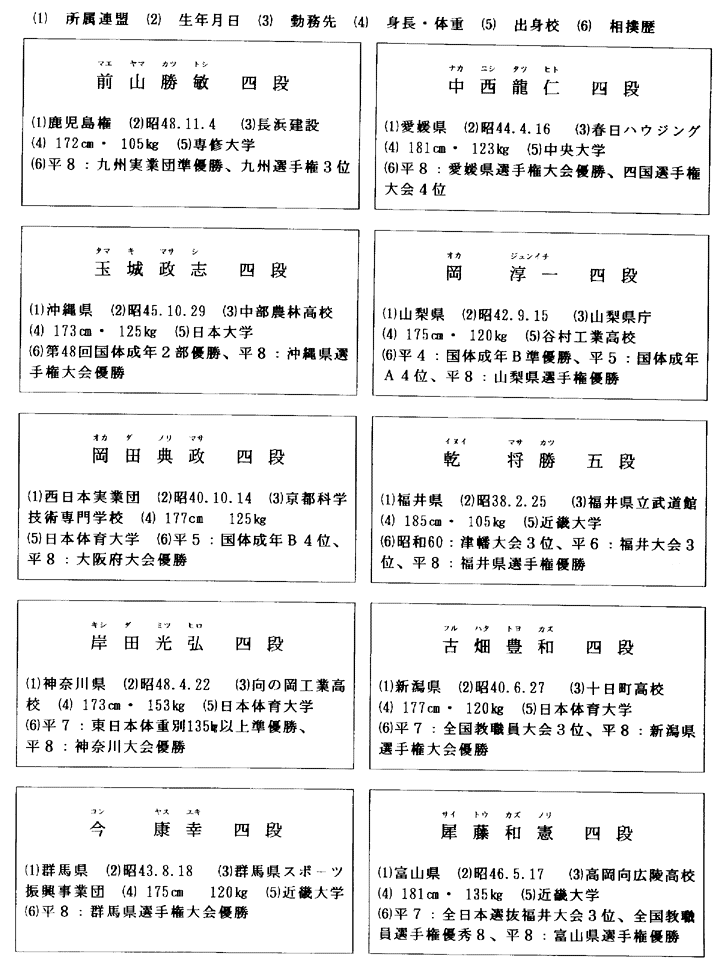 (1) 所属連盟 (2) 生年月日 (3) 勤務先 (4) 身長・体重 (5) 出身校 (6) 相撲歴
マエ ヤマ カツ トシ
前山勝敏 四段
(1)鹿児島権 (2)昭48.11.4 (3)長浜建設
(4) 172cm・ 105kg (5)専修大学
(6)平8：九州実業団準優勝、九州選手権3位
ナカ ニシ タツ ヒト
中西龍仁 四段
(1)愛媛県 (2)昭44.4.16 (3)春日ハウジング
(4) 181cm・ 123kg (5)中央大学
(6)平8：愛媛県選手権大会優勝、四国選手権
大会4位
タマ キ マサ シ
玉城政志 四段
(1)沖縄県 (2)昭45.10.29 (3)中部農林高校
(4) 173cm・ 125kg (5)日本大学
(6)第48回国体成年2部優勝、平8：沖縄県選
手権大会優勝
オカ ジュンイチ
岡 淳一 四段
(1)山梨県 (2)昭42.9.15 (3)山梨県庁
(4) 175cm・ 120kg (5)谷村工業高校
(6)平4：国体成年B準優勝、平5：国体成年
A4位、平8：山梨県選手権優勝
オカ ダ ノリ マサ
岡田典政 四段
(1)西日本実業団 (2)昭40.10.14 (3)京都科学
技術専門学校 (4) 177cm 125kg
(5)日本体育大学 (6)平5：国体成年B4位、
平8：大阪府大会優勝
イヌイ マサ カツ
乾 将勝 五段
(1)福井県 (2)昭38.2.25 (3)福井県立武道館
(4) 185cm・ 105kg (5)近畿大学
(6)昭和60：津幡大会3位、平6：福井大会3
位、平8：福井県選手権優勝
キシ ダ ミツ ヒロ
岸田光弘 四段
(1)神奈川県 (2)昭48.4.22 (3)向の岡工業高
校 (4) 173cm・ 153kg (5)日本体育大学
(6)平7：東日本体重別135kg以上準優勝、
平8：神奈川大会優勝
フル ハタ トヨ カズ
古畑豊和 四段
(1)新潟県 (2)昭40.6.27 (3)十日町高校
(4) 177cm・ 120kg (5)日本体育大学
(6)平7：全国教職員大会3位、平8：新潟県
選手権大会優勝
コン ヤス ユキ
今 康幸 四段
(1)群馬県 (2)昭43.8.18 (3)群馬県スポーツ
振興事業団 (4) 175cm 120kg (5)近畿大学
(6)平8：群馬県選手権大会優勝
サイ トウ カズ ノリ
犀藤和憲 四段
(1)富山県 (2)昭46.5.17 (3)高岡向広陵高校
(4) 181cm・ 135kg (5)近畿大学
(6)平7：全日本選抜福井大会3位、全国教職
員選手権優秀8、平8：富山県選手権優勝